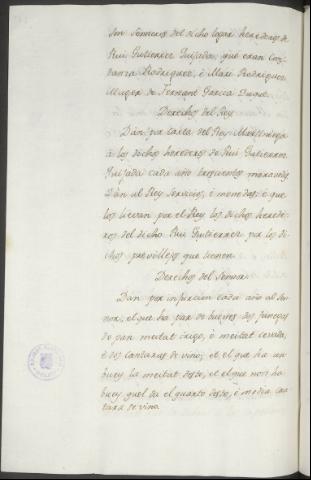 son Senneros del dicho logar herederos de
Rui Gutierrez Quijada, que eran Cons-
tanza Rodriguez, e Mari Rodriguez
Muger de Fernant Garcia Duque.
Derechos del Rey
Dan por carta del Rey Martiniega
a los dichos herederos de Rui Gutierrez
Quijada cada año trescientos maravedis
Dan al Rey Servicios, e monedas: e que
los lievan por el Rey los dichos herede-
ros del dicho Rui Gutierrez por los di-
chos previllejos que tienen.
Derechos del Sennor.
Dan por infurcion cada año al Sen-
nor, el que ha par de bueyes dos fanegas
de pan meitat trigo, e meitat cevada,
e dos cantaras de vino; et el que ha un
buey la meitat desto, et el que non ha
buey quel da el quarto desto, e media can-
tara de vino.